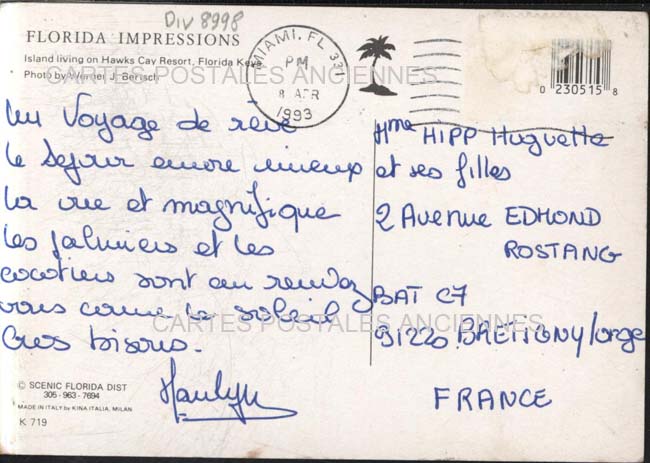 Div 8998
FLORIDA IMPRESSIONS
Island living on Hawks Cay Resort, Florida Keys
Photo by Werner J. Bertsch
CARTES POSTALES ANCIENNES
MIAMI, FL 331
PM
8 APR
1993
0 230515 8
Un Voyage de rêve
le Sejour encore mieux
la vue et magnifique
les palmiers et les
cocotiers sont au rendez
vous come le soleil
Gros bisous.
Mme HIPP Huguette
et ses filles
2 Avenue EDMOND
ROSTANG
BAT C7
91220 BRETIGNY/orge
FRANCE
CARTES POSTALES ANCIENNES
© SCENIC FLORIDA DIST
305 - 963 - 7694
MADE IN ITALY by KINA ITALIA, MILAN
K 719